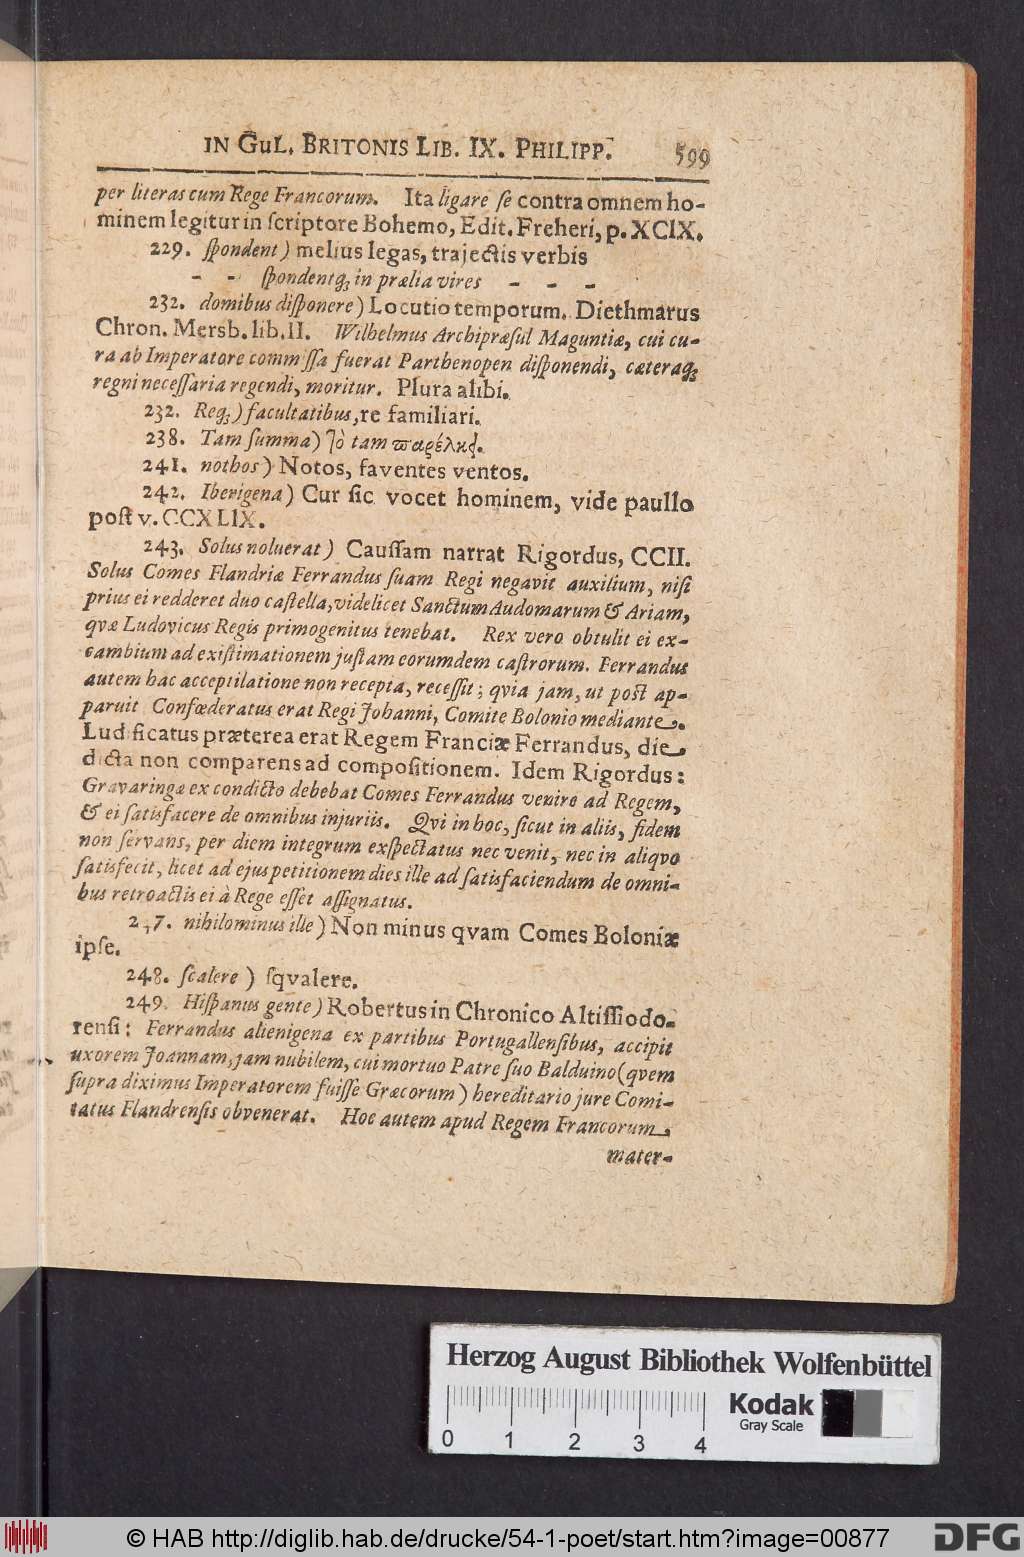 IN GUL. BRITONIS LIB. IX. PHILIPP. 599
per literas cum Rege Francorum. Ita ligare se contra omnem ho-
minem legitur in scriptore Bohemo, Edit. Freheri, p. XCIX.
229. spondent) melius legas, trajectis verbis
- - spondentq; in prælia vires - - -
232. domibus disponere) Locutio temporum. Diethmarus
Chron. Mersb. lib. II. Wilhelmus Archipræsul Maguntiæ, cui cu-
ra ab Imperatore commissa fuerat Parthenopen disponendi, cæteraq;
regni necessaria regendi, moritur. Plura alibi.
232. Req;) facultatibus, re familiari.
238. Tam summa) τὸ tam παρέλκει.
241. nothos) Notos, faventes ventos.
242. Iberigena) Cur sic vocet hominem, vide paullo
post v. CCXLIX.
243. Solus noluerat) Caussam narrat Rigordus, CCII.
Solus Comes Flandriæ Ferrandus suam Regi negavit auxilium, nisi
prius ei redderet duo castella, videlicet Sanctum Audomarum & Ariam,
qvæ Ludovicus Regis primogenitus tenebat. Rex vero obtulit ei ex-
cambium ad existimationem justam eorumdem castrorum. Ferrandus
autem hac acceptilatione non recepta, recessit; qvia jam, ut post ap-
paruit Confœderatus erat Regi Johanni, Comite Bolonio mediante.
Ludificatus præterea erat Regem Franciæ Ferrandus, die
dicta non comparens ad compositionem. Idem Rigordus:
Gravaringæ ex condicto debebat Comes Ferrandus venire ad Regem,
& ei satisfacere de omnibus injuriis. Qvi in hoc, sicut in aliis, fidem
non servans, per diem integrum exspectatus nec venit, nec in aliqvo
satisfecit, licet ad ejus petitionem dies ille ad satisfaciendum de omni-
bus retroactis ei à Rege esset assignatus.
247. nihilominus ille) Non minus qvam Comes Boloniæ
ipse.
248. scalere) sqvalere.
249. Hispanus gente) Robertus in Chronico Altissiodo-
rensi: Ferrandus alienigena ex partibus Portugallensibus, accipit
uxorem Joannam, jam nubilem, cui mortuo Patre suo Balduino (qvem
supra diximus Imperatorem fuisse Græcorum) hereditario jure Comi-
tatus Flandrensis obvenerat. Hoc autem apud Regem Francorum
mater-
Herzog August Bibliothek Wolfenbüttel
Kodak
Gray Scale
0 1 2 3 4
© HAB http://diglib.hab.de/drucke/54-1-poet/start.htm?image=00877
DFG